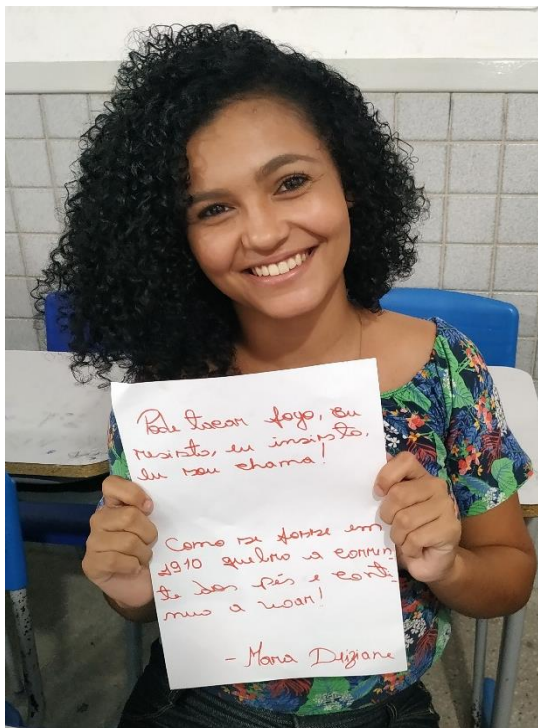 Pode tacar fogo, eu
resisto, eu insisto,
eu sou chama!
Como se fosse em
1910 quebro a corren-
te dos pés e conti-
nuo a voar!
- Mara Deiziane